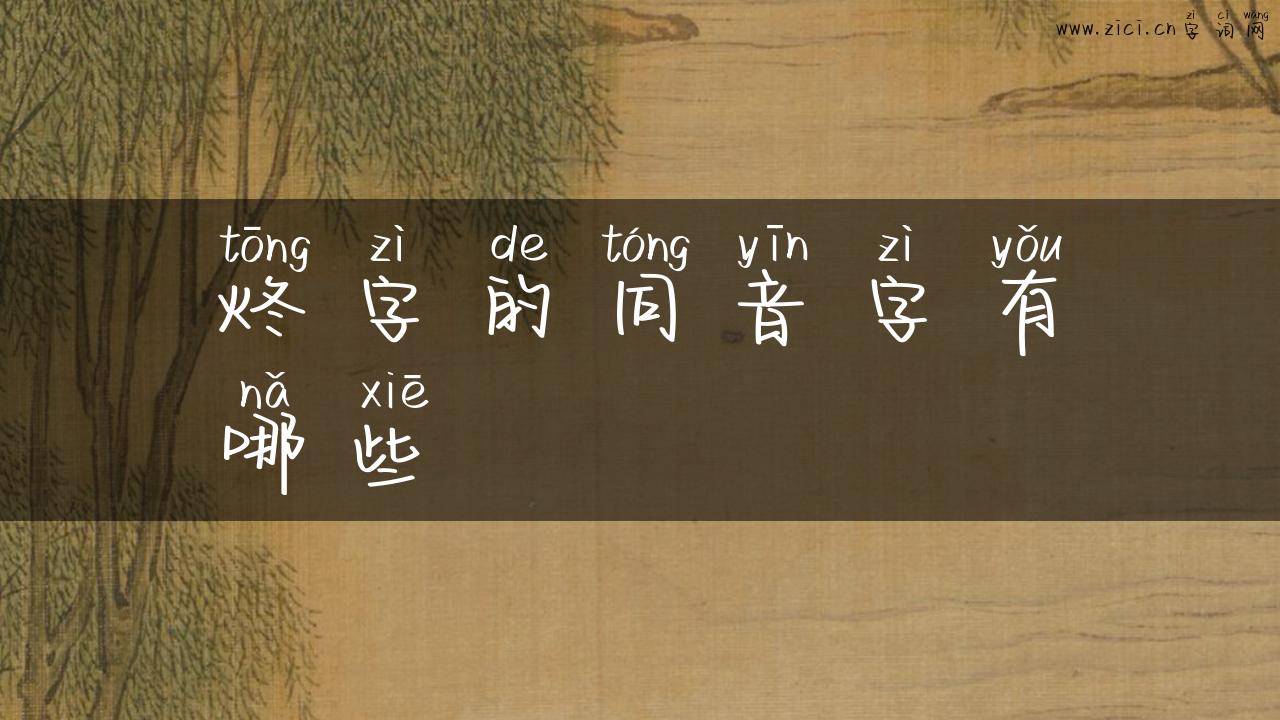 zì cí wǎng
www.zici.cn 字词网
tōng zì de tóng yīn zì yǒu
炵字的同音字有
nǎ xiē
哪些